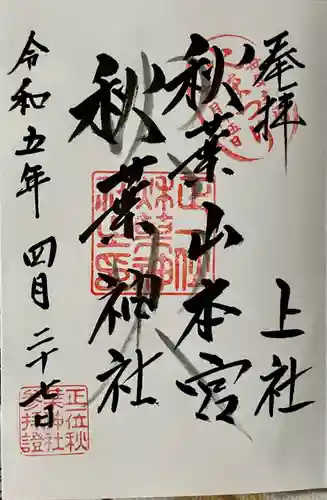 奉拝
上社
秋葉山本宮
秋葉神社
令和五年 四月 二十七日
正一位秋
葉神社
参拝證